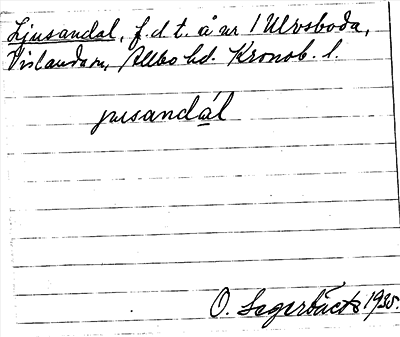 Ljusandal, f.d.t. å nr 1 Ulvsboda,
Vislanda sn, Allbo hd. Kronob. l.
jusandál
O. Lagerbäck 1935.